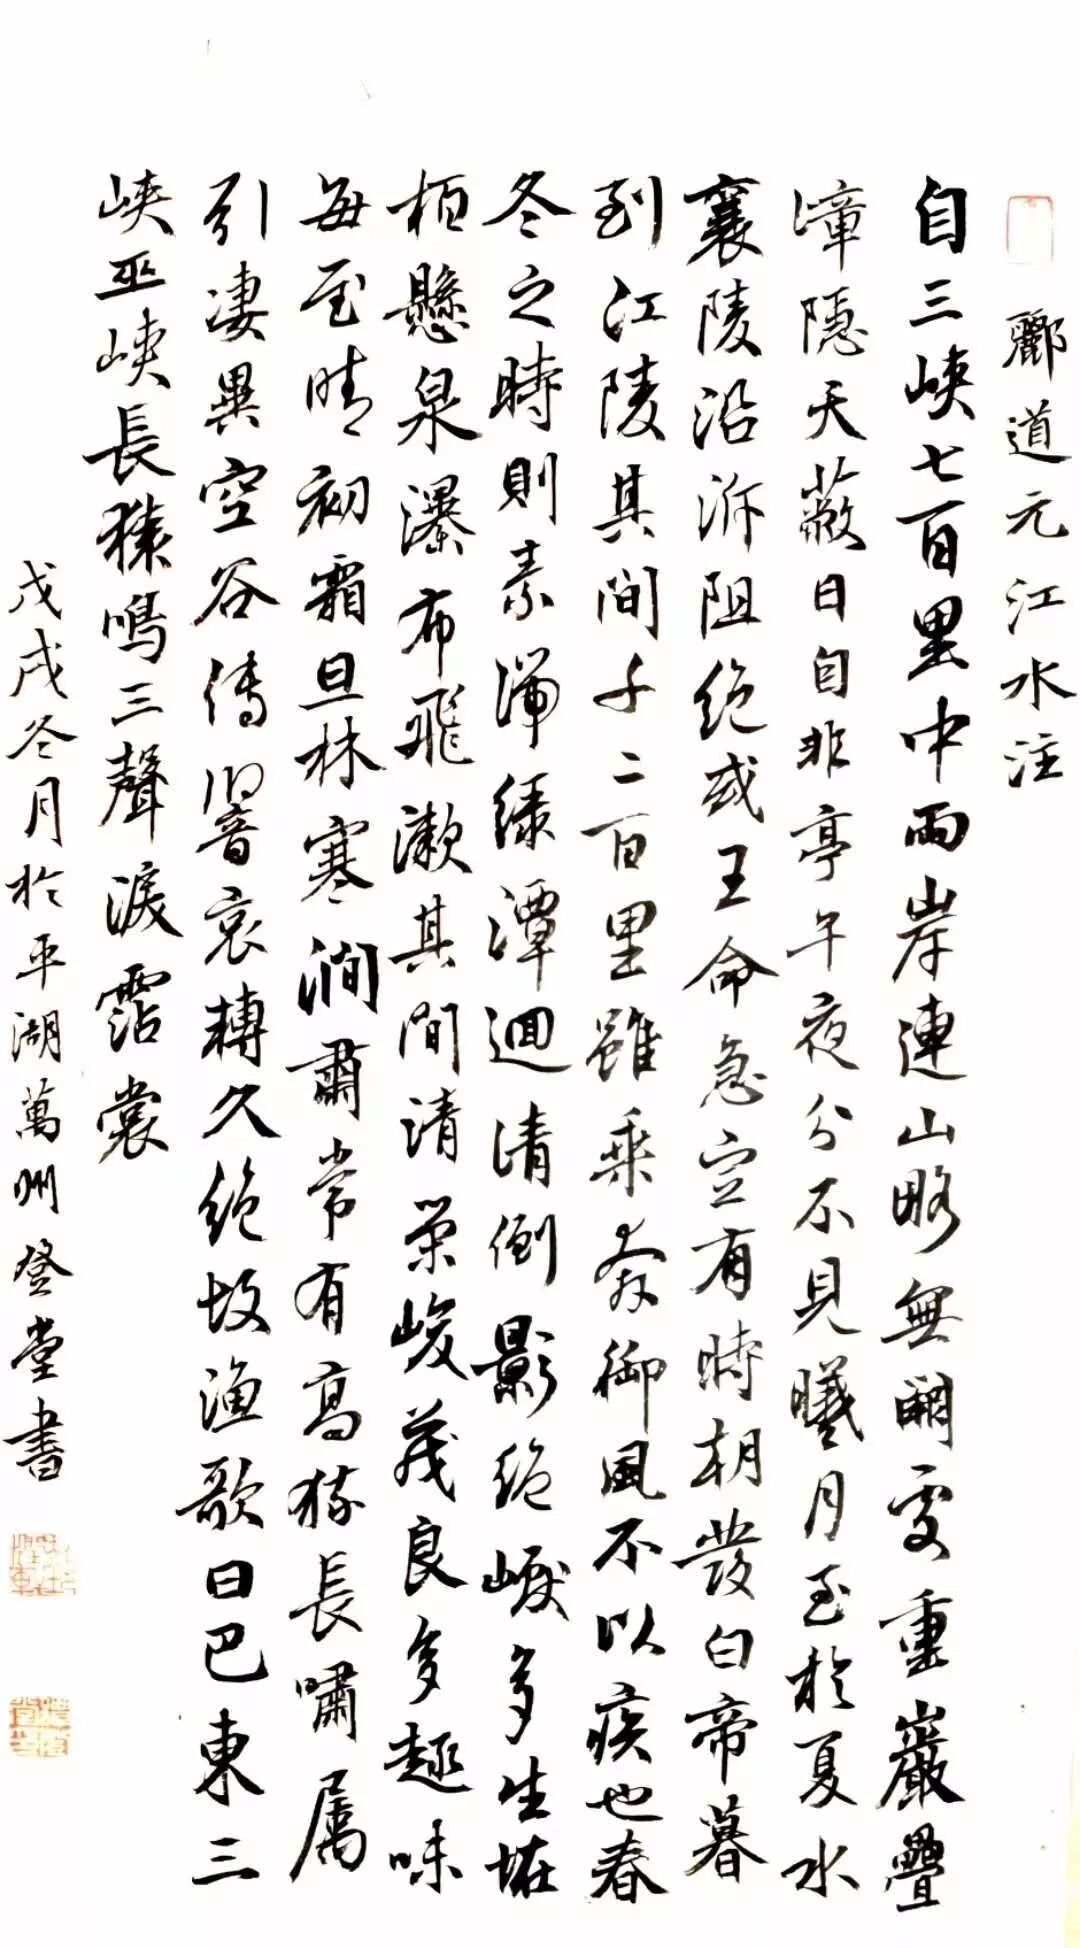 酈道元江水注
自三峽七百里中兩岸連山略無闕處重巖疊
嶂隱天蔽日自非亭午夜分不見曦月至於夏水
襄陵沿泝阻絕或王命急宣有時朝發白帝暮
到江陵其間千二百里雖乘奔御風不以疾也春
冬之時則素湍綠潭迴清倒影絕多生恠
柏懸泉瀑布飛漱其間清榮峻茂良多趣味
每至晴初霜旦林寒澗肅常有高猿長嘯属
引淒異空谷傳響哀轉久絕故漁歌曰巴東三
峽巫峽長猿鳴三聲淚霑裳
戊戌冬月於平湖萬州登堂書